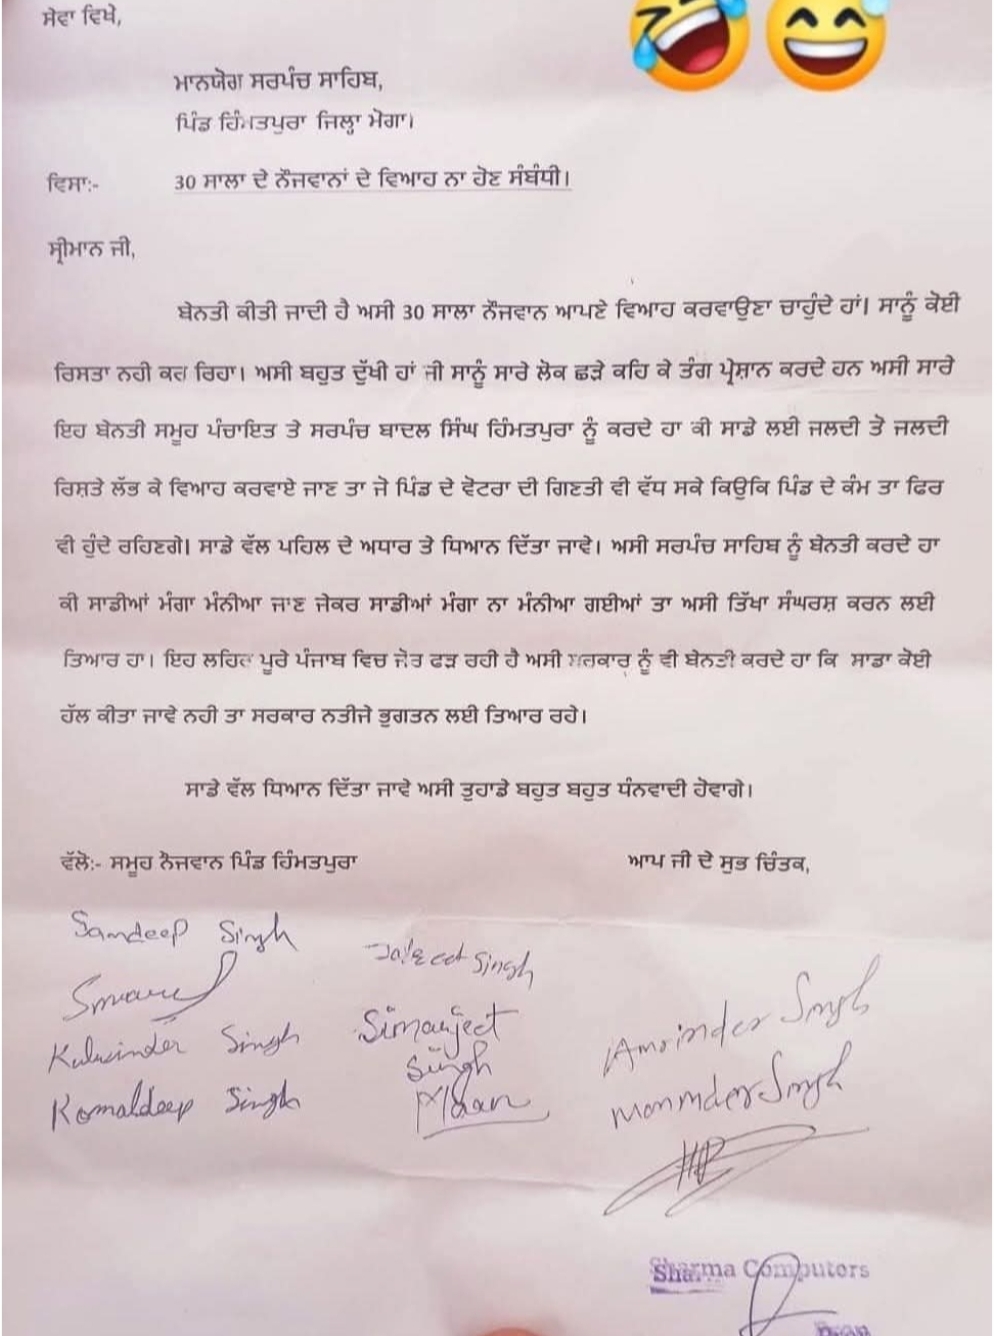 ਸੇਵਾ ਵਿਖੇ,
ਮਾਨਯੋਗ ਸਰਪੰਚ ਸਾਹਿਬ,
ਪਿੰਡ ਹਿੰਮਤਪੁਰਾ ਜਿਲ੍ਹਾ ਮੋਗਾ।
ਵਿਸਾ:- 30 ਸਾਲਾ ਦੇ ਨੌਜਵਾਨਾਂ ਦੇ ਵਿਆਹ ਨਾ ਹੋਣ ਸੰਬੰਧੀ।
ਸ੍ਰੀਮਾਨ ਜੀ,
ਬੇਨਤੀ ਕੀਤੀ ਜਾਦੀ ਹੈ ਅਸੀ 30 ਸਾਲਾ ਨੌਜਵਾਨ ਆਪਣੇ ਵਿਆਹ ਕਰਵਾਉਣਾ ਚਾਹੁੰਦੇ ਹਾਂ। ਸਾਨੂੰ ਕੋਈ
ਰਿਸਤਾ ਨਹੀ ਕਰ ਰਿਹਾ। ਅਸੀ ਬਹੁਤ ਦੁੱਖੀ ਹਾਂ ਜੀ ਸਾਨੂੰ ਸਾਰੇ ਲੋਕ ਛੜੇ ਕਹਿ ਕੇ ਤੰਗ ਪ੍ਰੇਸ਼ਾਨ ਕਰਦੇ ਹਨ ਅਸੀ ਸਾਰੇ
ਇਹ ਬੇਨਤੀ ਸਮੂਹ ਪੰਚਾਇਤ ਤੇ ਸਰਪੰਚ ਬਾਦਲ ਸਿੰਘ ਹਿੰਮਤਪੁਰਾ ਨੂੰ ਕਰਦੇ ਹਾ ਕੀ ਸਾਡੇ ਲਈ ਜਲਦੀ ਤੋ ਜਲਦੀ
ਰਿਸ਼ਤੇ ਲੱਭ ਕੇ ਵਿਆਹ ਕਰਵਾਏ ਜਾਣ ਤਾ ਜੋ ਪਿੰਡ ਦੇ ਵੋਟਰਾ ਦੀ ਗਿਣਤੀ ਵੀ ਵੱਧ ਸਕੇ ਕਿਉਕਿ ਪਿੰਡ ਦੇ ਕੰਮ ਤਾ ਫਿਰ
ਵੀ ਹੁੰਦੇ ਰਹਿਣਗੇ। ਸਾਡੇ ਵੱਲ ਪਹਿਲ ਦੇ ਅਧਾਰ ਤੇ ਧਿਆਨ ਦਿੱਤਾ ਜਾਵੇ। ਅਸੀ ਸਰਪੰਚ ਸਾਹਿਬ ਨੂੰ ਬੇਨਤੀ ਕਰਦੇ ਹਾ
ਕੀ ਸਾਡੀਆਂ ਮੰਗਾ ਮੰਨੀਆ ਜਾਣ ਜੇਕਰ ਸਾਡੀਆਂ ਮੰਗਾ ਨਾ ਮੰਨੀਆ ਗਈਆਂ ਤਾ ਅਸੀ ਤਿੱਖਾ ਸੰਘਰਸ਼ ਕਰਨ ਲਈ
ਤਿਆਰ ਹਾ। ਇਹ ਲਹਿਰ ਪੂਰੇ ਪੰਜਾਬ ਵਿਚ ਜੋਰ ਫੜ ਰਹੀ ਹੈ ਅਸੀ ਸਰਕਾਰ ਨੂੰ ਵੀ ਬੇਨਤੀ ਕਰਦੇ ਹਾ ਕਿ ਸਾਡਾ ਕੋਈ
ਹੱਲ ਕੀਤਾ ਜਾਵੇ ਨਹੀ ਤਾ ਸਰਕਾਰ ਨਤੀਜੇ ਭੁਗਤਨ ਲਈ ਤਿਆਰ ਰਹੇ।
ਸਾਡੇ ਵੱਲ ਧਿਆਨ ਦਿੱਤਾ ਜਾਵੇ ਅਸੀ ਤੁਹਾਡੇ ਬਹੁਤ ਬਹੁਤ ਧੰਨਵਾਦੀ ਹੋਵਾਗੇ।
ਵੱਲੋ:- ਸਮੂਹ ਨੋਜਵਾਨ ਪਿੰਡ ਹਿੰਮਤਪੁਰਾ
ਆਪ ਜੀ ਦੇ ਸੁਭ ਚਿੰਤਕ,
Sandeep Singh
Singh
Kulwinder Singh
Komaldeep Singh
Simarjeet
Singh
Amrinder Singh
Maninder Singh
Sharma Computers